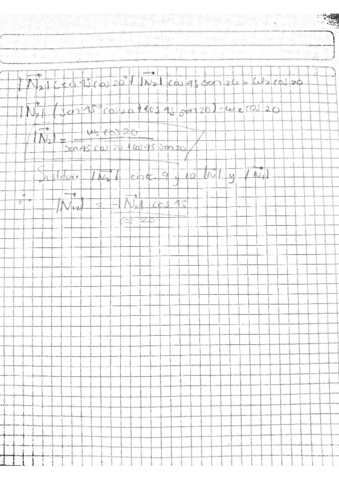 |N₂| sen 45 cos 20 + |N₂| cos 45 sen 20 = ω₂ cos 20
|N₂| (sen 45° cos 20 + cos 45 sen 20) = ω₂ cos 20
|N₂| = ω₂ cos 20 / sen 45 cos 20 + cos 45 sen 20
Sustituir |N₂| en ec 9 y 10 |N| y |N₁|
∴ |N₁₂| = -|N₂| cos 45 / cos 20